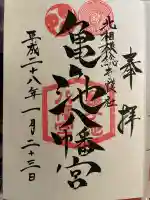 奉拝
北相模総本鎮社
亀ヶ池八幡宮
平成二十八年一月二十三日